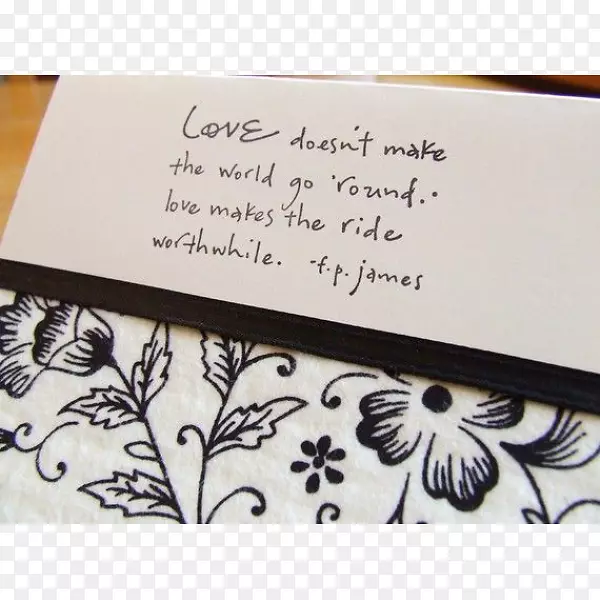 Love doesn't make
the world go 'round..
love makes the ride
worthwhile. -f.p. james